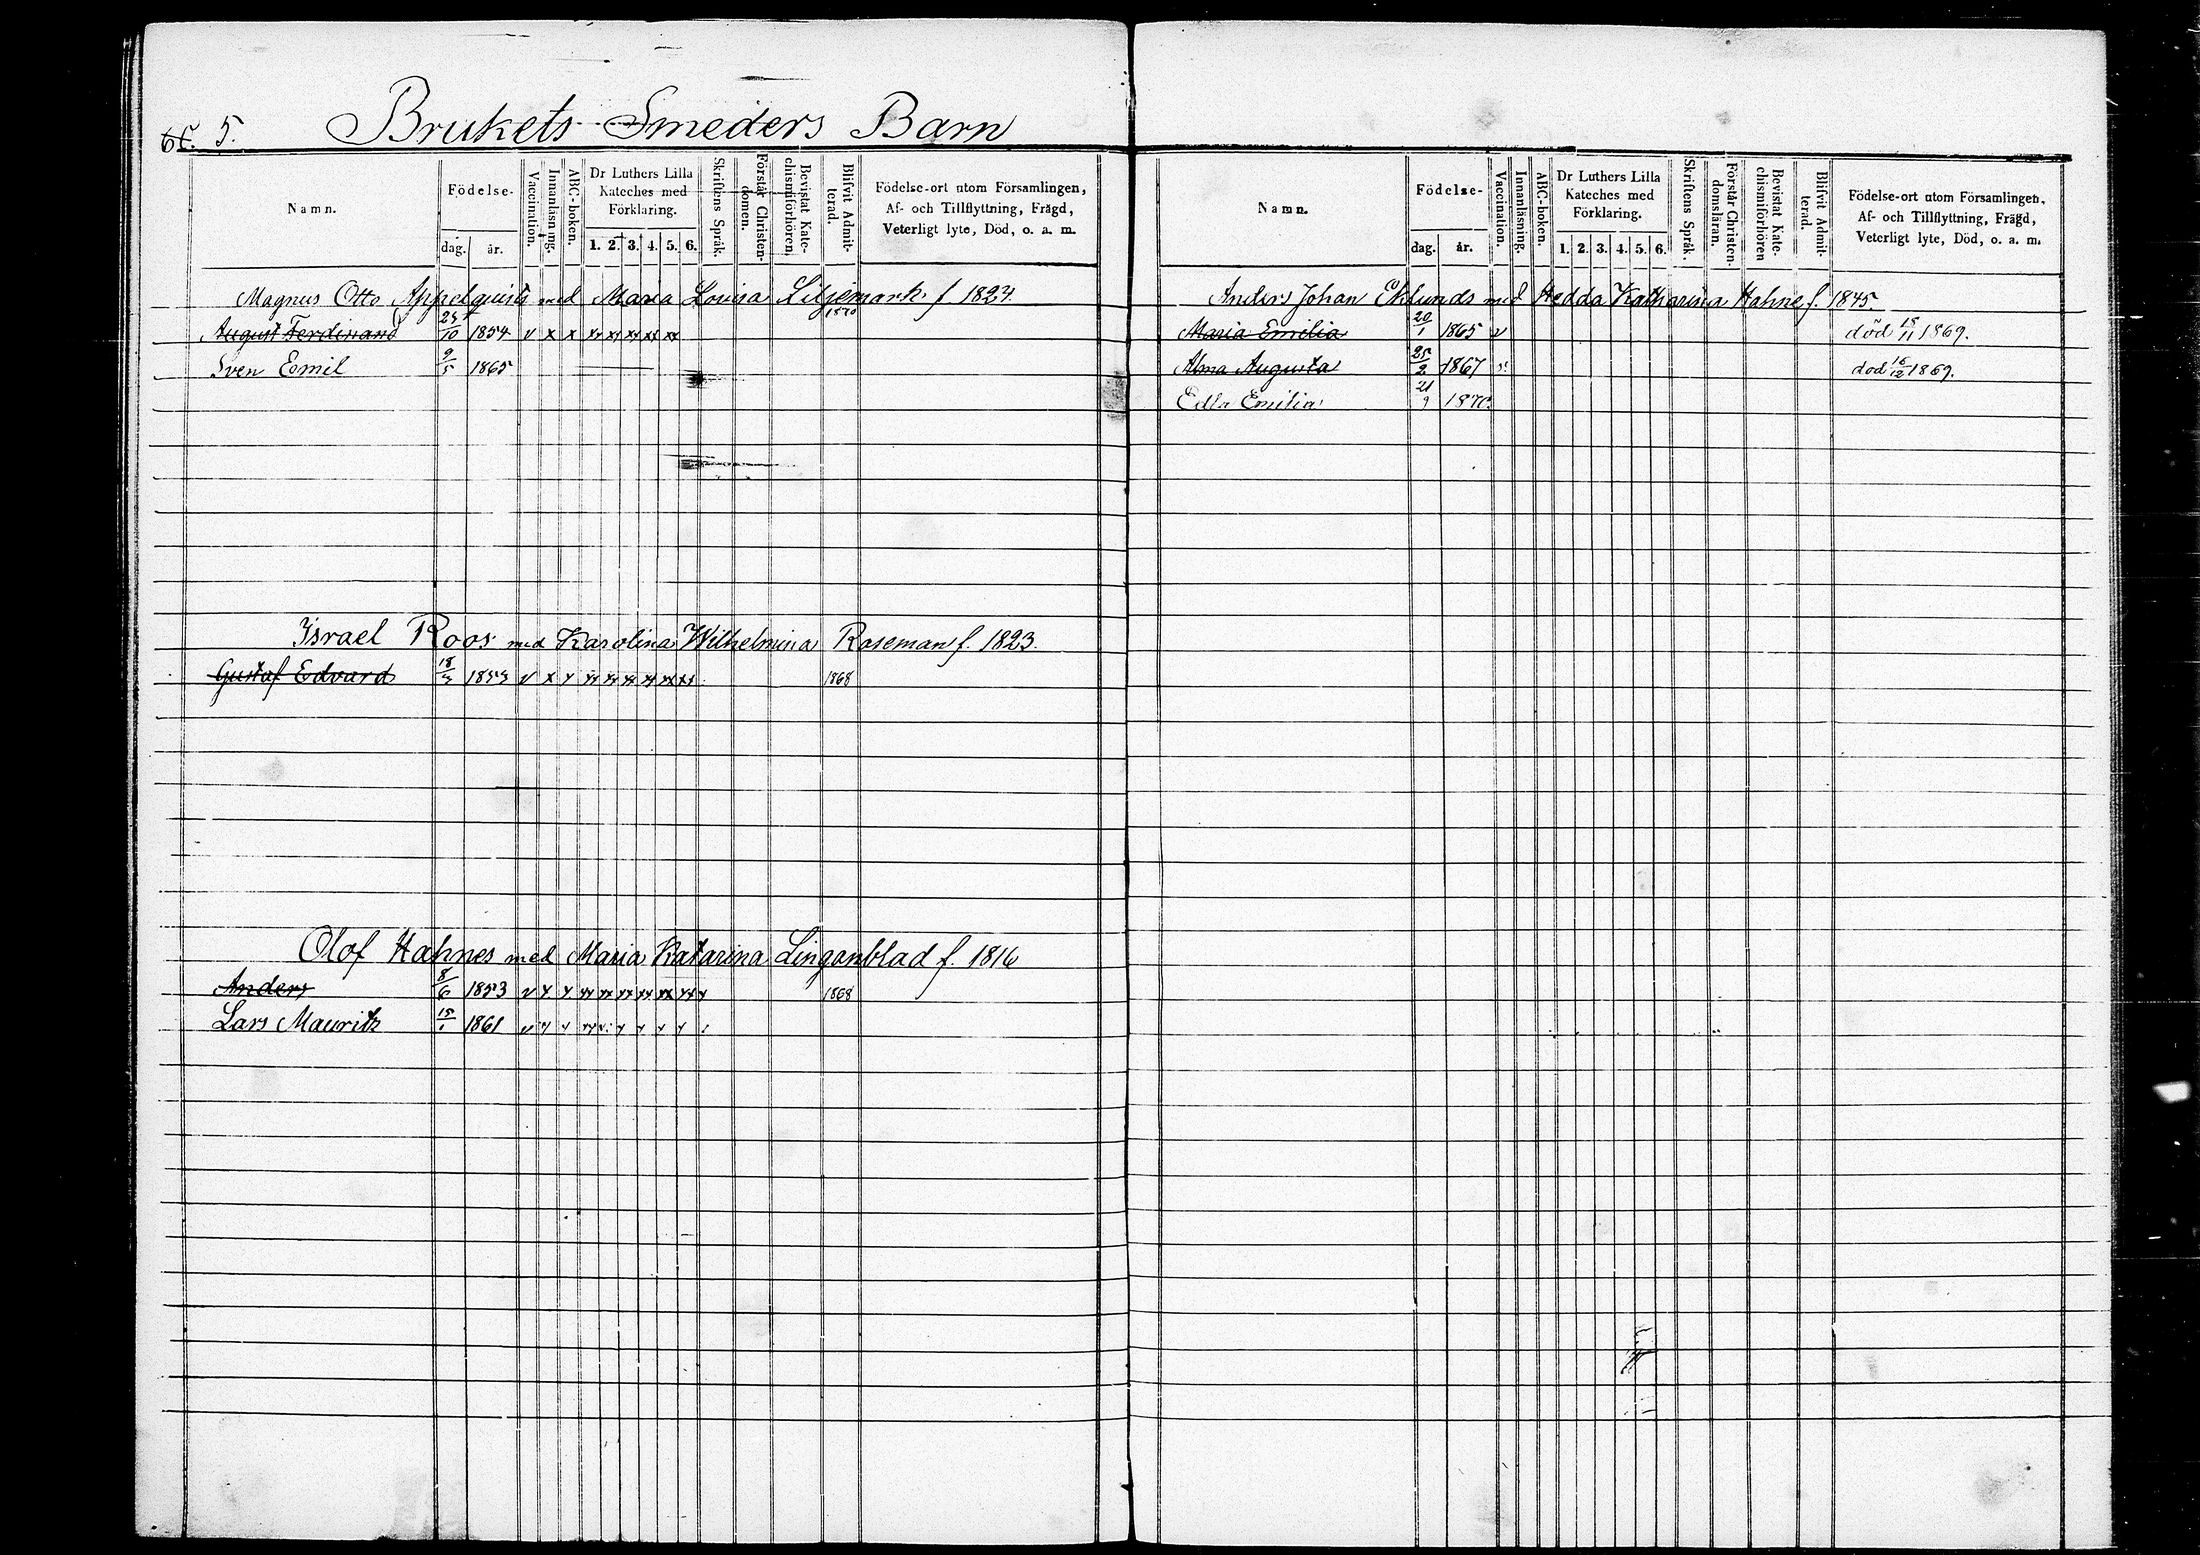 5. Brukets Smeders Barn
Namn. Födelse- dag. år. Vaccination. Innanläsning. ABC-boken. Dr Luthers Lilla Kateches med Förklaring. 1. 2. 3. 4. 5. 6. Skriftens Språk. Förstår Christendomen. Bevistat Katechismiförhören Blifvit Admitterad. Födelse-ort utom Församlingen, Af- och Tillflyttning, Frägd, Veterligt lyte, Död, o. a. m.
Magnus Otto Appelquists med Maria Lovisa Liljemark f 1824.
August Ferdinand 24/10 1854 v x x xx xx xx xx xx 1870
Sven Emil 9/5 1865
Israel Roos med Karolina Wilhelmina Roseman f. 1823.
Gustaf Edvard 1853 v x x xx xx xx xx xx xx 1868
Olof Hahnes med Maria Katarina Linganblad f. 1816
Anders 8/6 1853 v x x xx xx xx xx xx xx x 1868
Lars Mauritz 15/1 1861
Namn. Födelse- dag. år. Vaccination. Innanläsning. ABC-boken. Dr Luthers Lilla Kateches med Förklaring. 1. 2. 3. 4. 5. 6. Skriftens Språk Förstår Christendomsläran. Bevistat Katechismiförhören Blifvit Admitterad. Födelse-ort utom Församlingen, Af- och Tillflyttning, Frägd, Veterligt lyte, Död, o. a. m.
Anders Johan Eklunds med Hedda Katharina Hahne f. 1845.
Maria Emilia 20/1 1865 v död 18/11 1869.
Alma Augusta 25/2 1867 v död 16/12 1869.
Edla Emilia 21/9 1870.